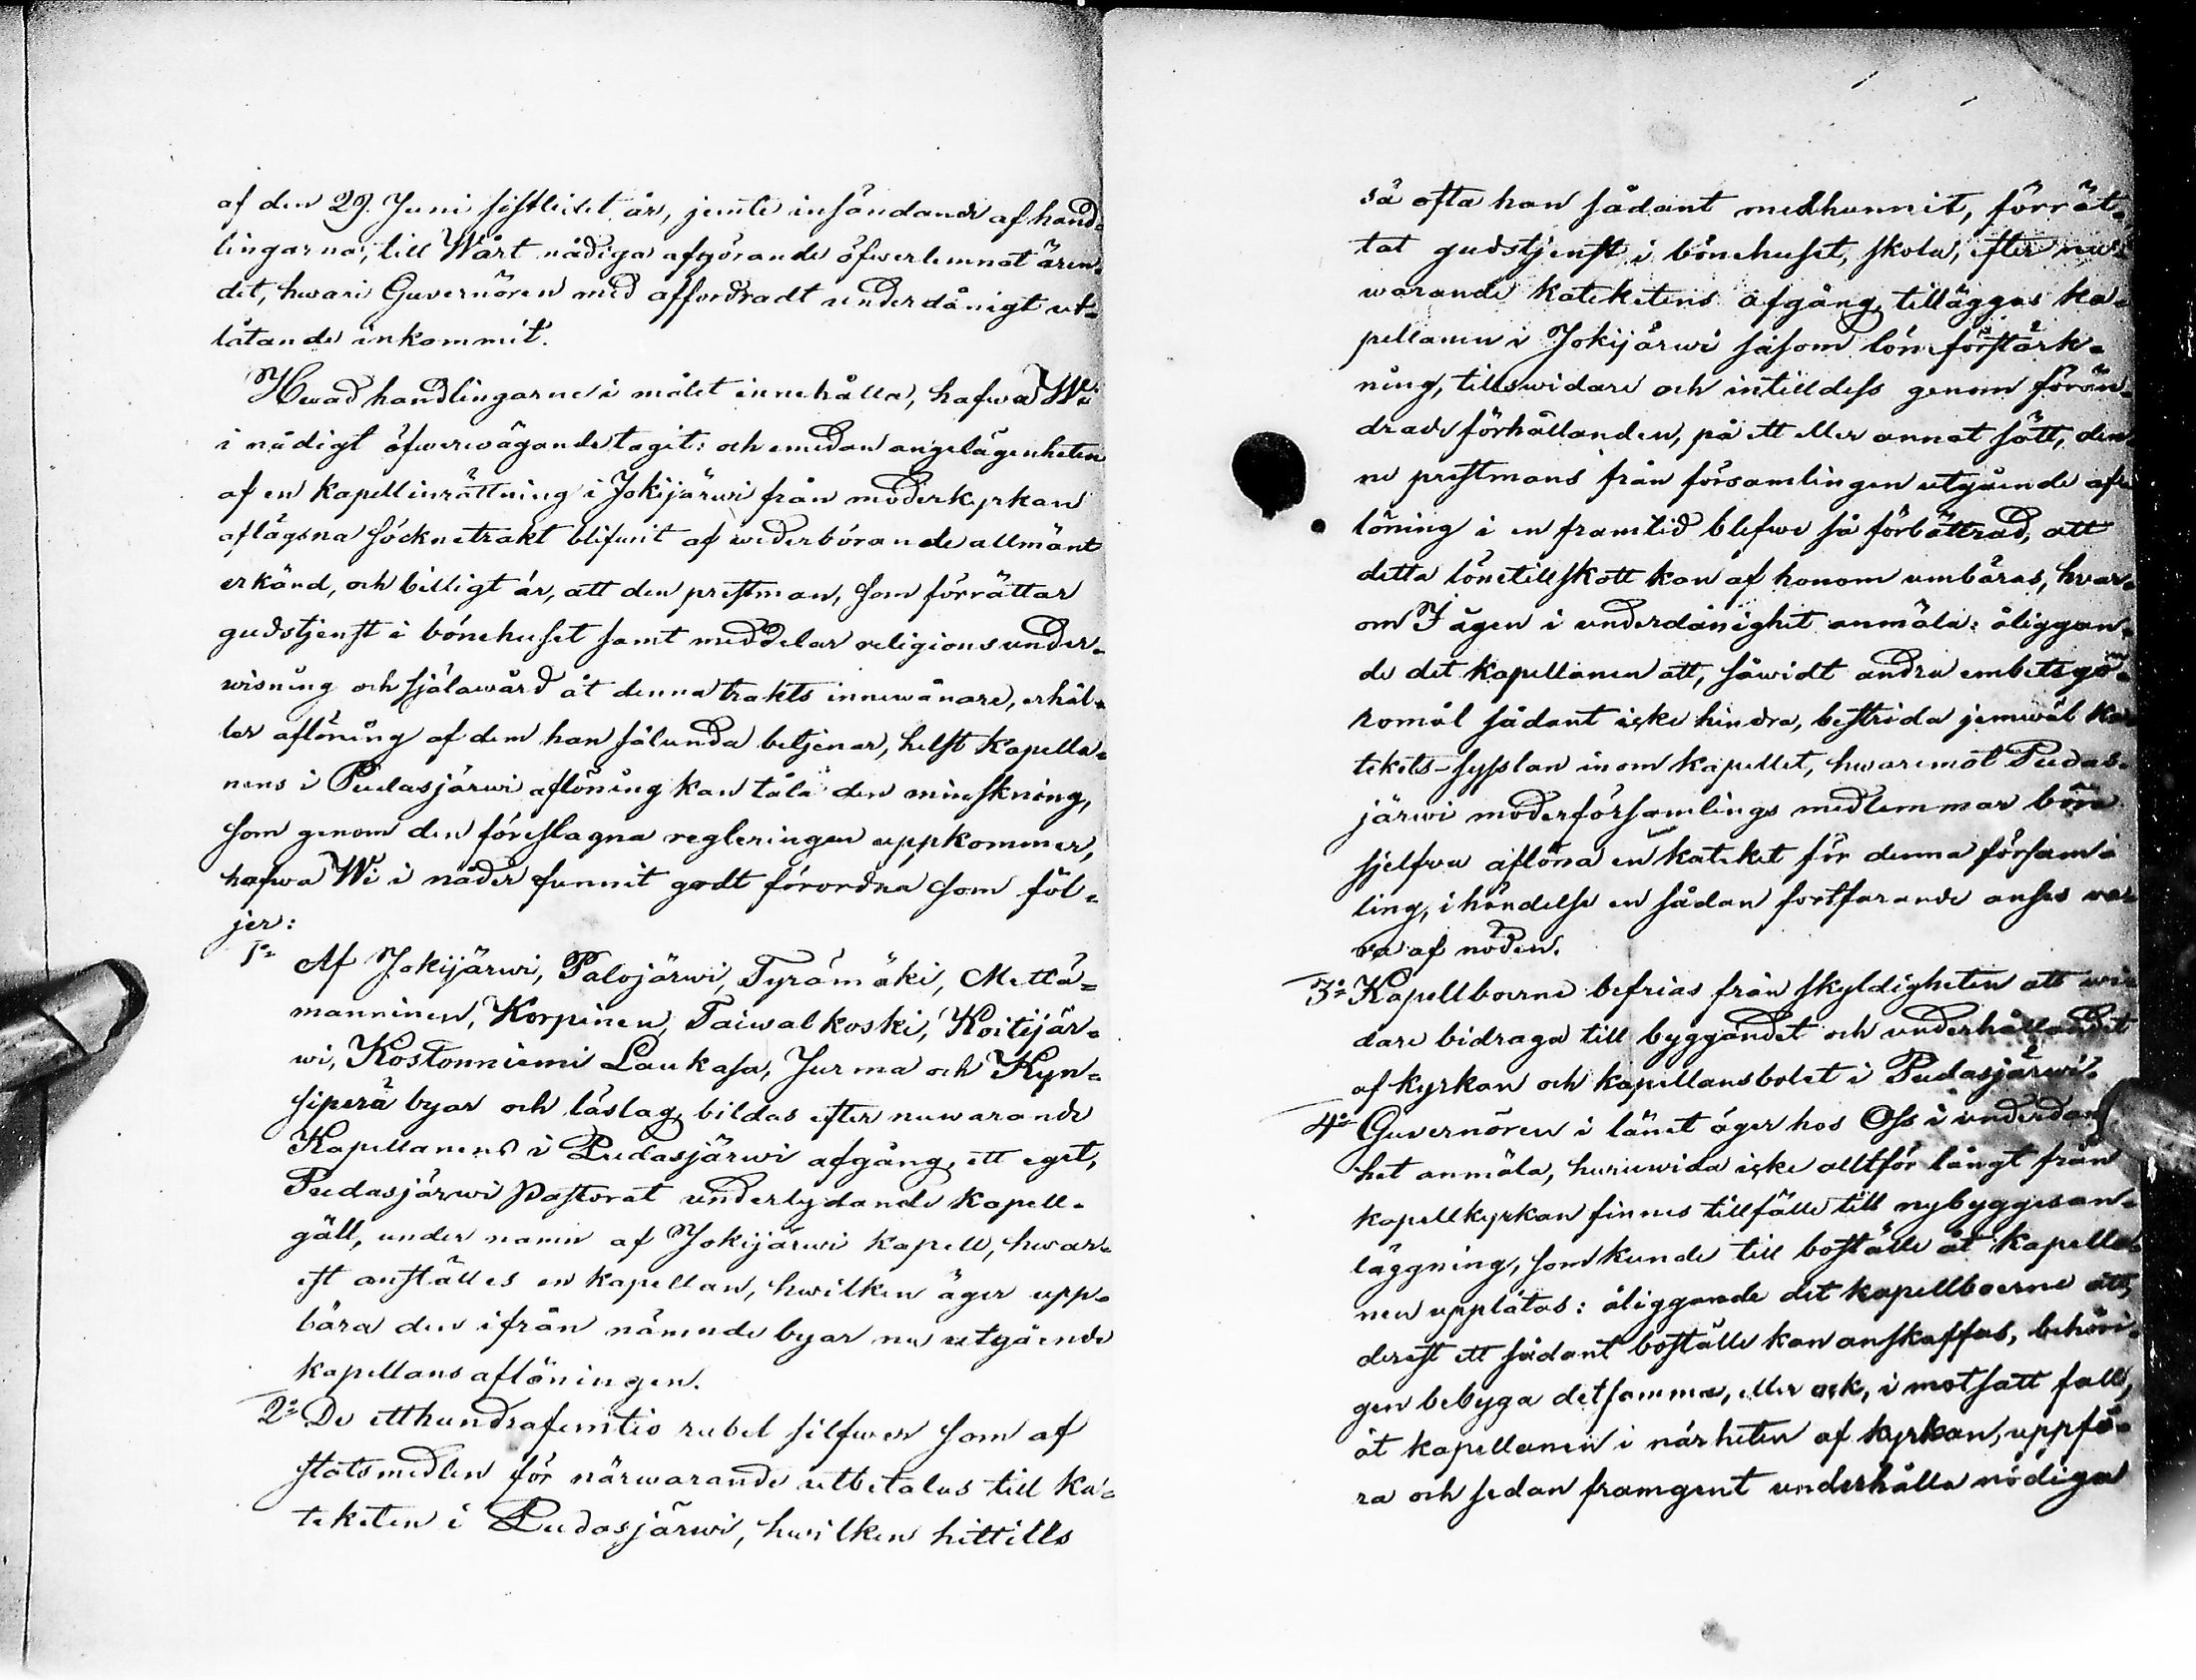 af den 29. Juni sistledet år, jemte insändande af hand-
lingarna, till Wårt nådiga afgörande öfwerlemnat ären-
det, hwari Guvernören med affordradt underdånigt ut-
låtande inkommit.
Hwad handlingarne i målet innehålla, hafwa Wi
i nådigt öfwerwägande tagit: och emedan angelägenheten
af en kapellinrättning i Jokijärwi från moderkyrkan
aflägsna socknetrakt blifwit af wederbörande allmänt
erkänd, och billigt är, att den prestman, som förrättar
gudstjenst i bönehuset samt meddelar religionsunder-
wisning och själawård åt denna trakts innewånare, erhål-
ler aflöning af dem han sålunda betjenar, helst Kapella-
nens i Pudasjärwi aflöning kan tåla den minskning,
som genom den föreslagna regleringen uppkommer,
hafwa Wi i nåder funnit godt förordna som föl-
jer:
1o Af Jokijärwi, Palojärwi, Tyrämäki, Mettä-
manninen, Korpinen, Taiwalkoski, Koitijär-
wi, Kostonniemi Laukasa, Jurma och Kyn-
siperä byar och läslag, bildas efter nuwarande
Kapellanens i Pudasjärwi afgång, ett eget,
Pudasjärwi Pastorat underlydande kapell-
gäll, under namn af Jokijärwi kapell, hwar-
est anställes en kapellan, hwilken äger upp-
bära den ifrån nämnde byar nu utgående
kapellans aflöningen.
2o De etthundrafemtio rubel silfwer som af
statsmedlen för närwarande utbetalas till Ka-
teketen i Pudasjärwi, hwilken hittills
så ofta han sådant medhunnit, förrät-
tat gudstjenst i bönehuset, skola, efter nu-
warande kateketens afgång, tilläggas ka-
pellanen i Jokijärwi såsom löneförstärk-
ning, tillswidare och intilldess genom förän-
drade förhållanden, på ett eller annat sätt, den-
ne prestmans från församlingen utgående af-
löning i en framtid blefwe så förbättrad, att
detta lönetillskott kan af honom umbäras, hvar-
om I ägen i underdånighet anmäla: åliggan-
de det kapellanen att, såwidt andra embetsgö-
romål sådant icke hindra, bestrida jemwäl ka-
tekets-sysslan inom kapellet, hwaremot Pudas-
järwi moderförsamlings medlemmar böra
sjelfwa aflöna en kateket för denna försam-
ling, i händelse en sådan fortfarande anses wa-
ra af nöden.
3o Kapellboerne befrias från skyldigheten att wi-
dare bidraga till byggandet och underhållandet
af kyrkan och kapellansbolet i Pudasjärwi.
4o Guvernören i länet äger hos Oss i underdånig-
het anmäla, huruwida icke alltför långt från
kapellkyrkan finnes tillfälle till nybyggesan-
läggning, som kunde till boställe åt kapella-
nen upplåtas: åliggande det kapellboerne att,
derest ett sådant boställe kan anskaffas, behöri-
gen bebyga detsamma, eller ock, i motsatt fall,
åt kapellanen i närheten af kyrkan, uppfö-
ra och sedan framgent underhålla nödiga